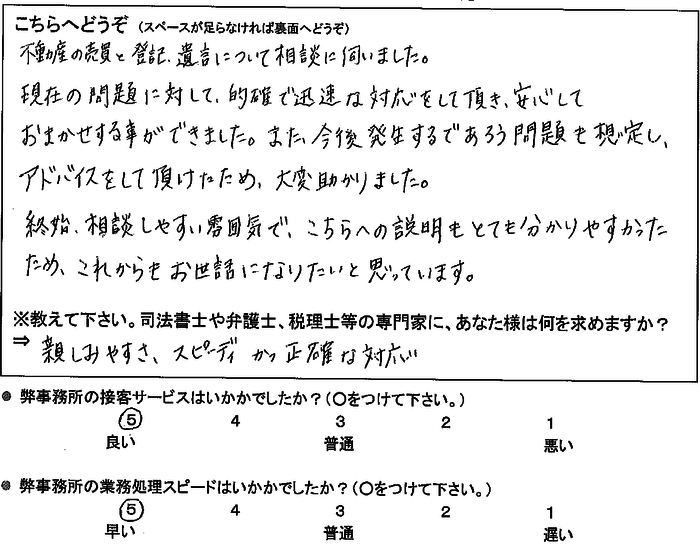 こちらへどうぞ（スペースが足らなければ裏面へどうぞ）
不動産の売買と登記、遺言について相談に伺いました。
現在の問題に対して、的確で迅速な対応をして頂き、安心して
おまかせする事ができました。また、今後発生するであろう問題も想定し、
アドバイスをして頂けたため、大変助かりました。
終始、相談しやすい雰囲気で、こちらへの説明もとても分かりやすかった
ため、これからもお世話になりたいと思っています。
※教えて下さい。司法書士や弁護士、税理士等の専門家に、あなた様は何を求めますか？
⇒ 親しみやすさ、スピーディかつ正確な対応
● 弊事務所の接客サービスはいかかでしたか？（○をつけて下さい。）
⑤ 4 3 2 1
良い 普通 悪い
● 弊事務所の業務処理スピードはいかかでしたか？（○をつけて下さい。）
⑤ 4 3 2 1
早い 普通 遅い